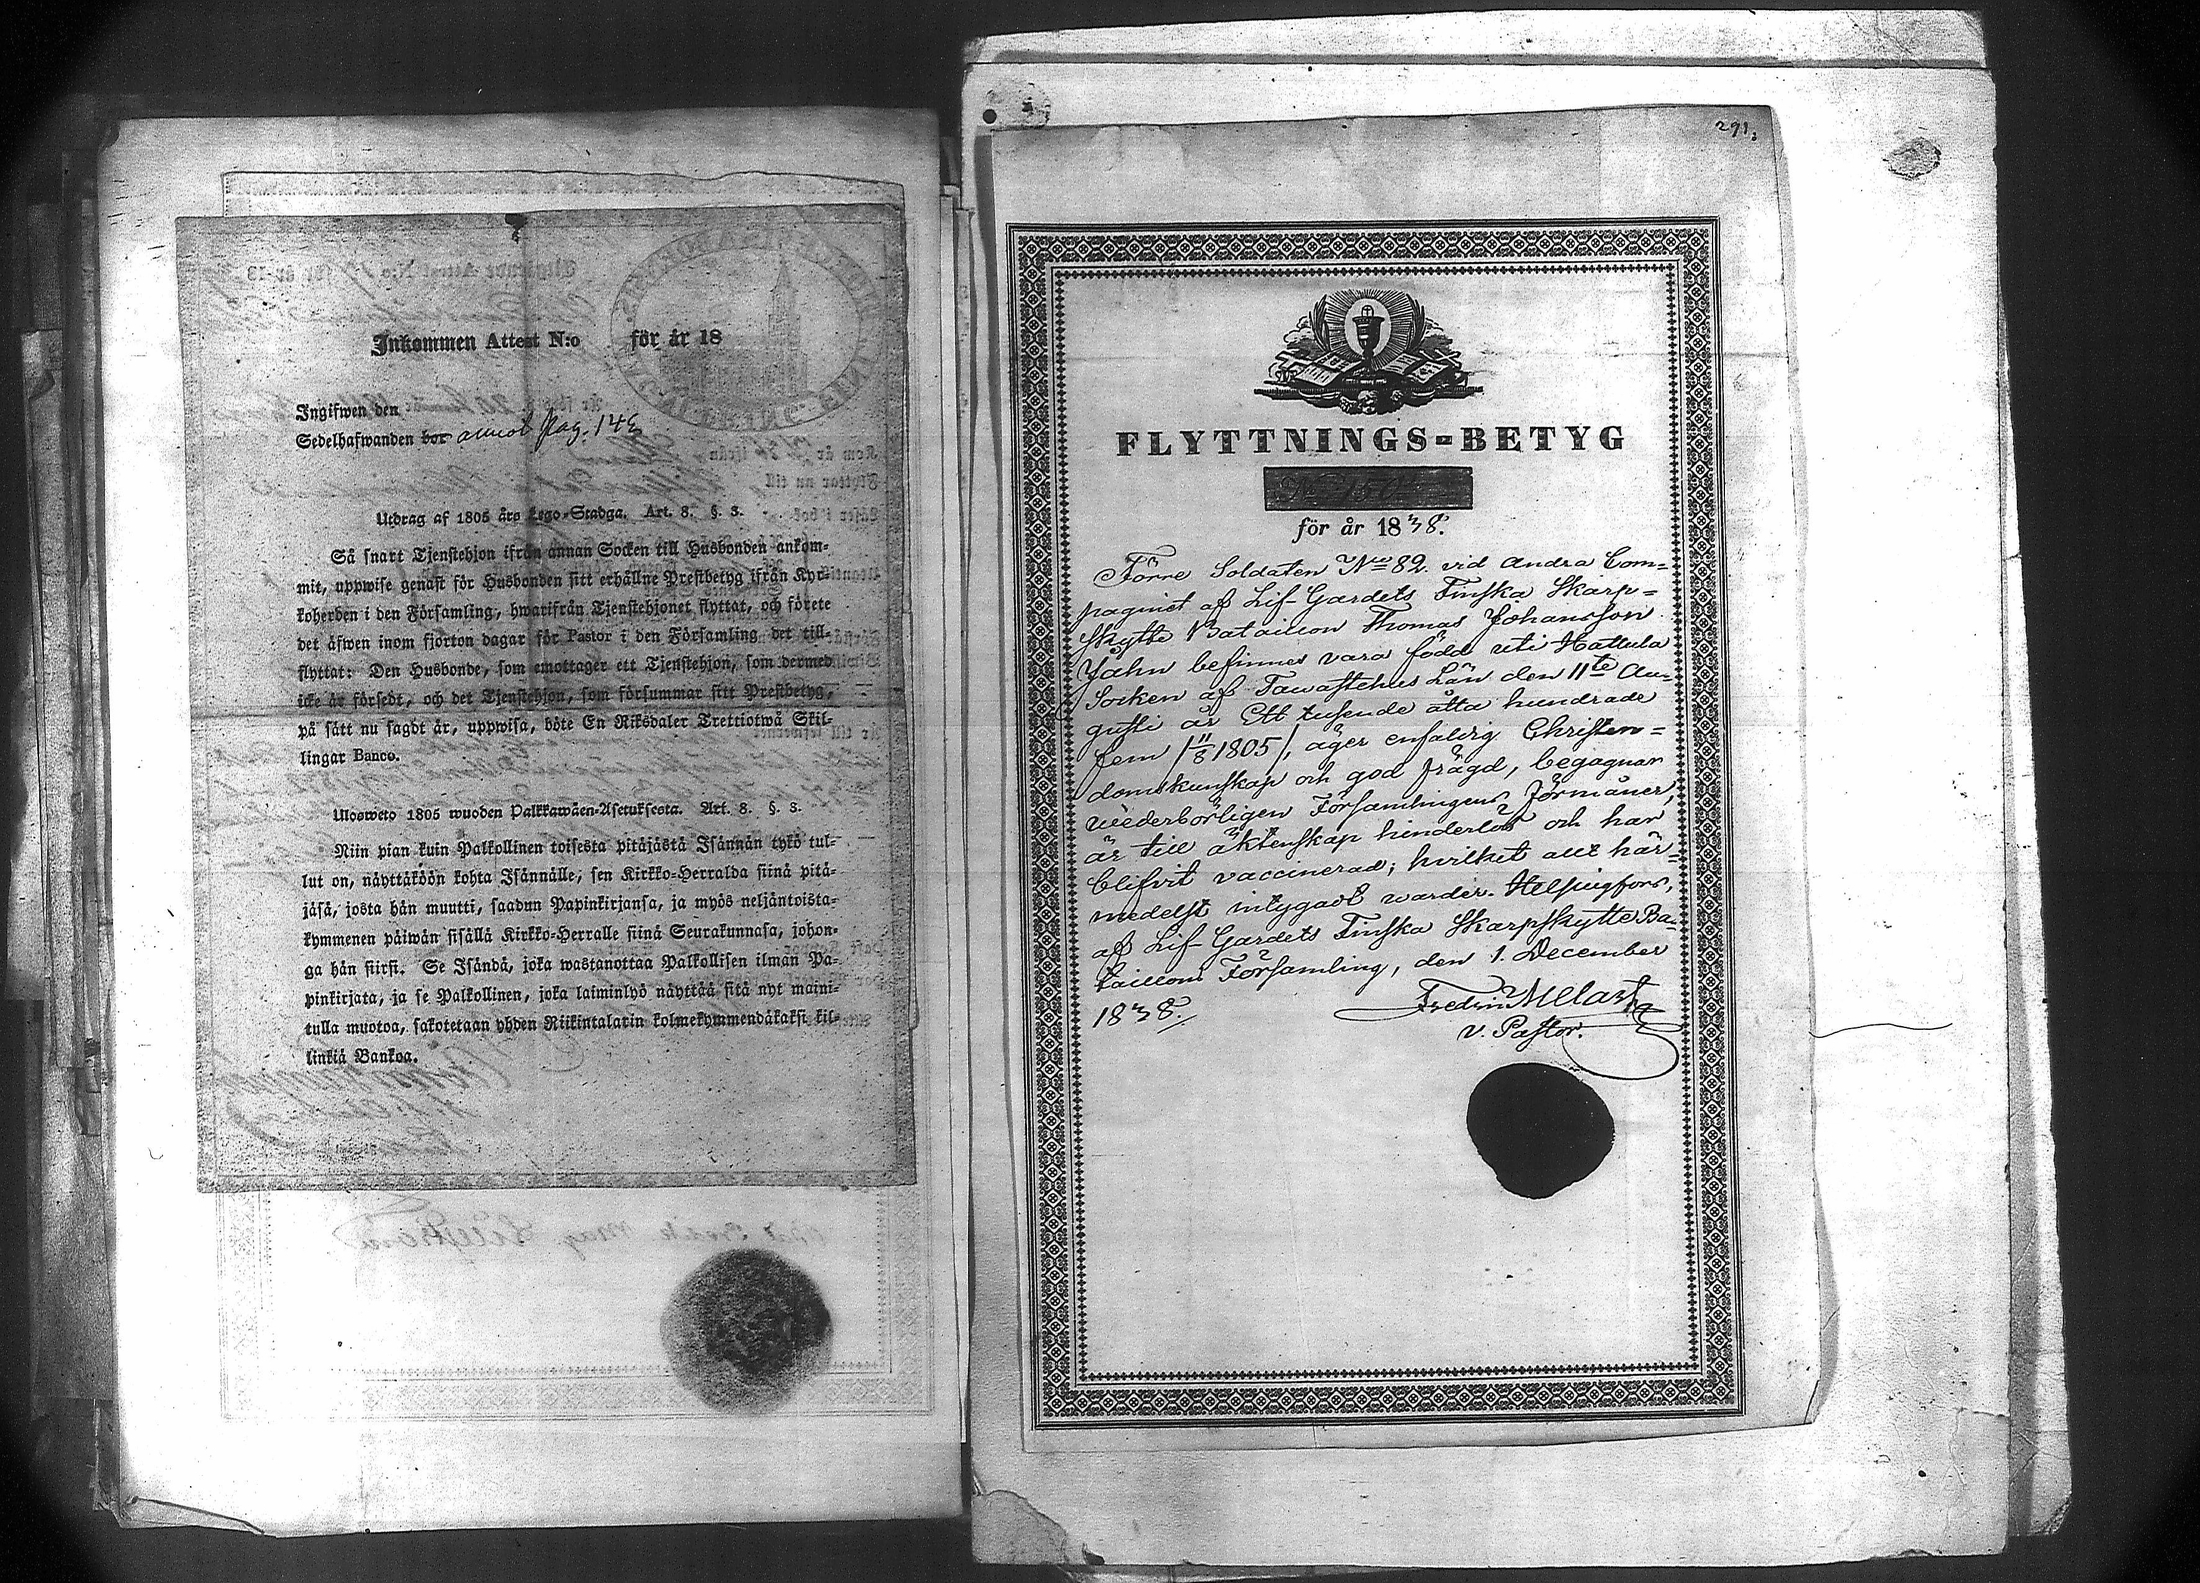 Inkommen Attest N:o för år 18
Ingifwen den
Sedelhafwanden bor annot pag. 145
Utdrag af 1805 års Lego-Stadga. Art. 8. §. 3.
Så snart Tjenstehjon ifrån annan Socken till Husbonden ankom-
mit, uppwise genast för Husbonden sitt erhållne Prestbetyg ifrån Kyr-
koherden i den Församling, hwarifrån Tjenstehjonet flyttat, och förete
det äfwen inom fjorton dagar för Pastor i den Församling det till-
flyttat: Den Husbonde, som emottager ett Tjenstehjon, som dermed
icke är försedt, och det Tjenstehjon, som försummar sitt Prestbetyg,
på sätt nu sagdt är, uppwisa, böte En Riksdaler Trettiotwå Skil-
lingar Banco.
Ulosweto 1805 wuoden Palkkawäen-Asetuksesta. Art. 8. §. 3.
Niin pian kuin Palkollinen toisesta pitäjästä Isännän tykö tul-
lut on, näyttäköön kohta Isännälle, sen Kirkko-Herralda siinä pitä-
jäsä, josta hän muutti, saadun Papinkirjansa, ja myös neljäntoista-
kymmenen päiwän sisällä Kirkko-Herralle siinä Seurakunnasa, johon-
ga hän siirsi. Se Isändä, joka wastanottaa Palkollisen ilman Pa-
pinkirjata, ja se Palkollinen, joka laiminlyö näyttää sitä nyt maini-
tulla muotoa, sakotetaan yhden Riikintalarin kolmekymmendäkaksi kil-
linkiä Bankoa.
291.
FLYTTNINGS-BETYG
No 150
för år 1838.
Förre Soldaten No 82. vid Andra Com-
pagniet af Lif-Gardets Finska Skarp-
skytte Bataillon Thomas Johansson
Jahn befinnes vara född uti Hattula
Socken af Tawastehus Län den 11te Au-
gusti år Ett tusende åtta hundrade
fem /11/8 1805/, äger enfaldig Christen-
domskunskap och god frägd, begagnar
wederbörligen Församlingens förmåner,
är till äktenskap hinderlös och har
blifvit vaccinerad; hvilket allt här-
medelst intygadt warder. Helsingfors,
af Lif-Gardets Finska Skarpskytte Ba-
taillons Församling, den 1. December
1838.
Fredrik Melart
v. Pastor.